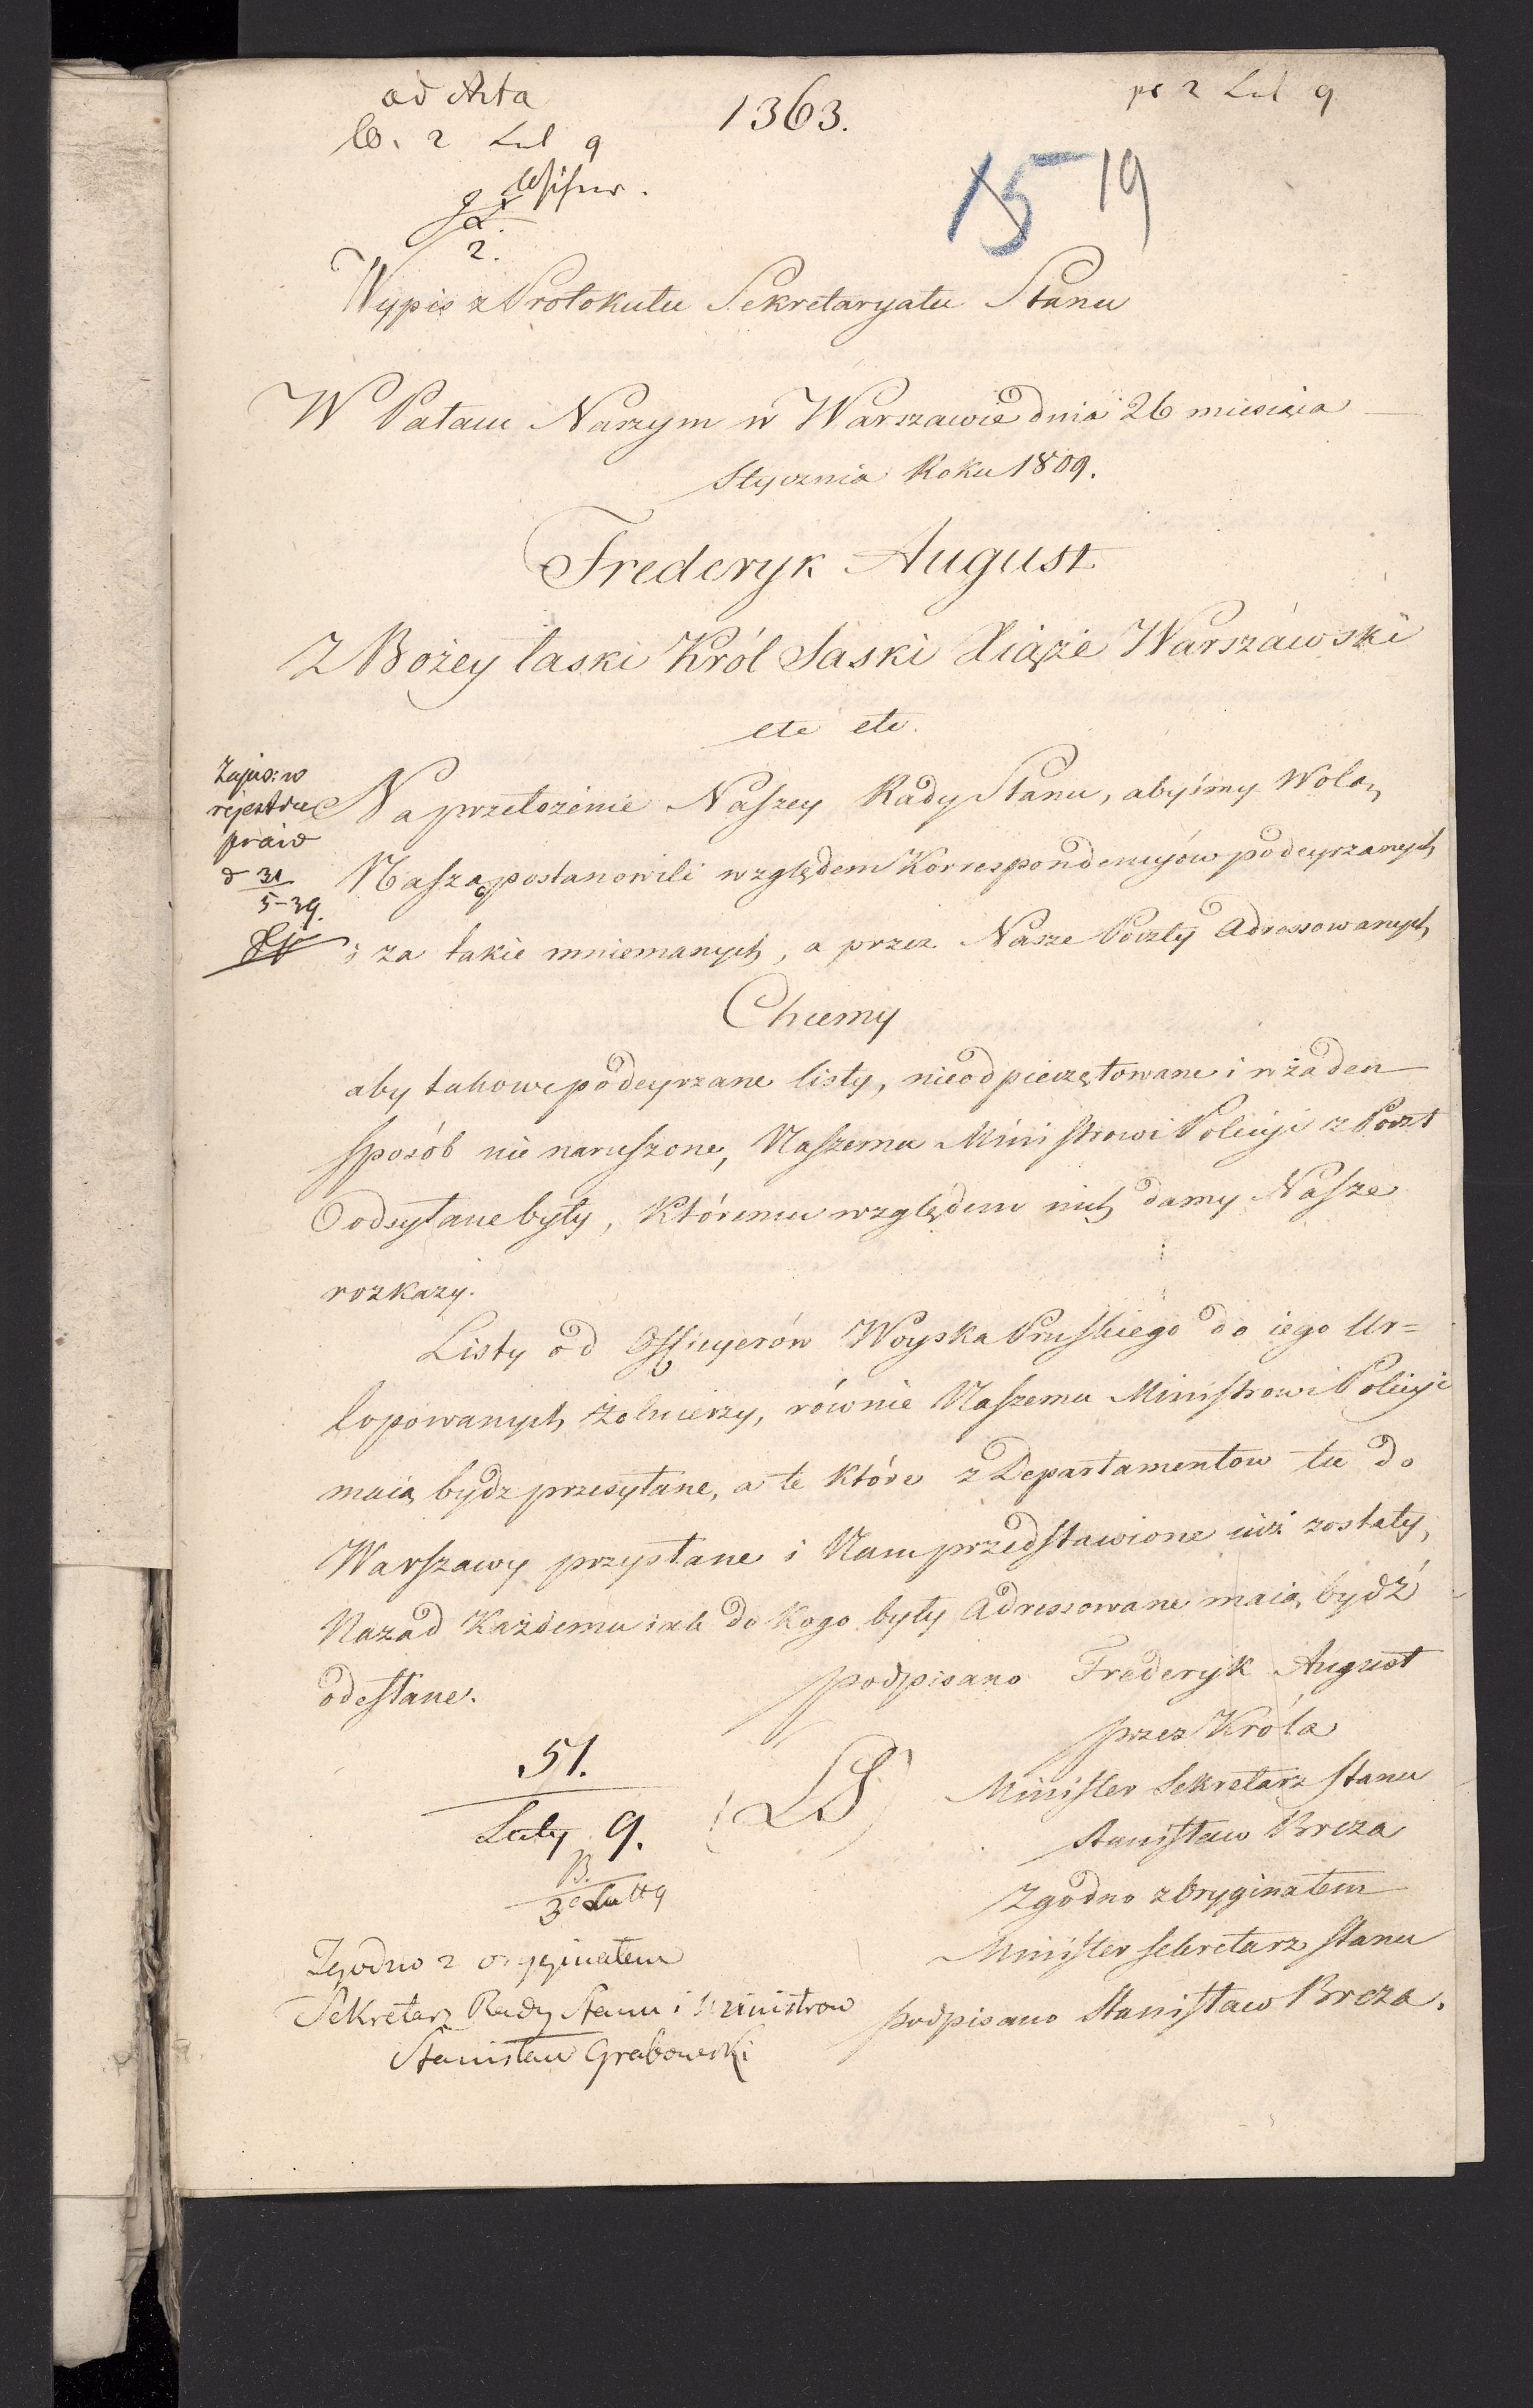 ad Acta
1363.
pr 2 Lut 9
B. 2 Lut 9
15 19
2.
Wypis z Protokułu Sekretaryatu Stanu
W Pałacu Naszym w Warszawie dnia 26 miesiąca
Stycznia Roku 1809.
Frederyk August
Z Bożey łaski Król Saski Xiąże Warszawski
etc etc.
Zapis: w
rejestrze
praw
d 31
5-39.
Na przełożenie Naszey Rady Stanu, abyśmy Wolą
Naszą postanowili względem Korrespondencyów podeyrzanych
i za takie mniemanych, a przez Nasze Poczty Adressowanych
Chcemy
aby takowe podeyrzane listy, nieodpieczętowane i w żaden
sposób nie naruszone, Naszemu Ministrowi Policyi z Poczt
Odsyłane były, Któremu względem nich damy Nasze
rozkazy.
Listy od Officyerów Woyska Pruskiego do iego Ur=
lopowanych żołnierzy, równie Naszemu Ministrowi Policyi
maią bydz przesyłane, a te które z Departamentow tu do
Warszawy przysłane i Nam przedstawione iuż zostały,
Nazad Każdemu iak do Kogo były Adressowane maią bydź
odesłane.
podpisano Frederyk August
przez Króla
Minister Sekretarz Stanu
Stanisław Breza
(LS)
51.
Luty 9.
B.
3 Lutt 9
Zgodno z Oryginałem
Minister Sekretarz Stanu
podpisano Stanisław Breza.
Zgodno z oryginałem
Sekretarz Rady Stanu i Ministrow
Stanisław Grabowski